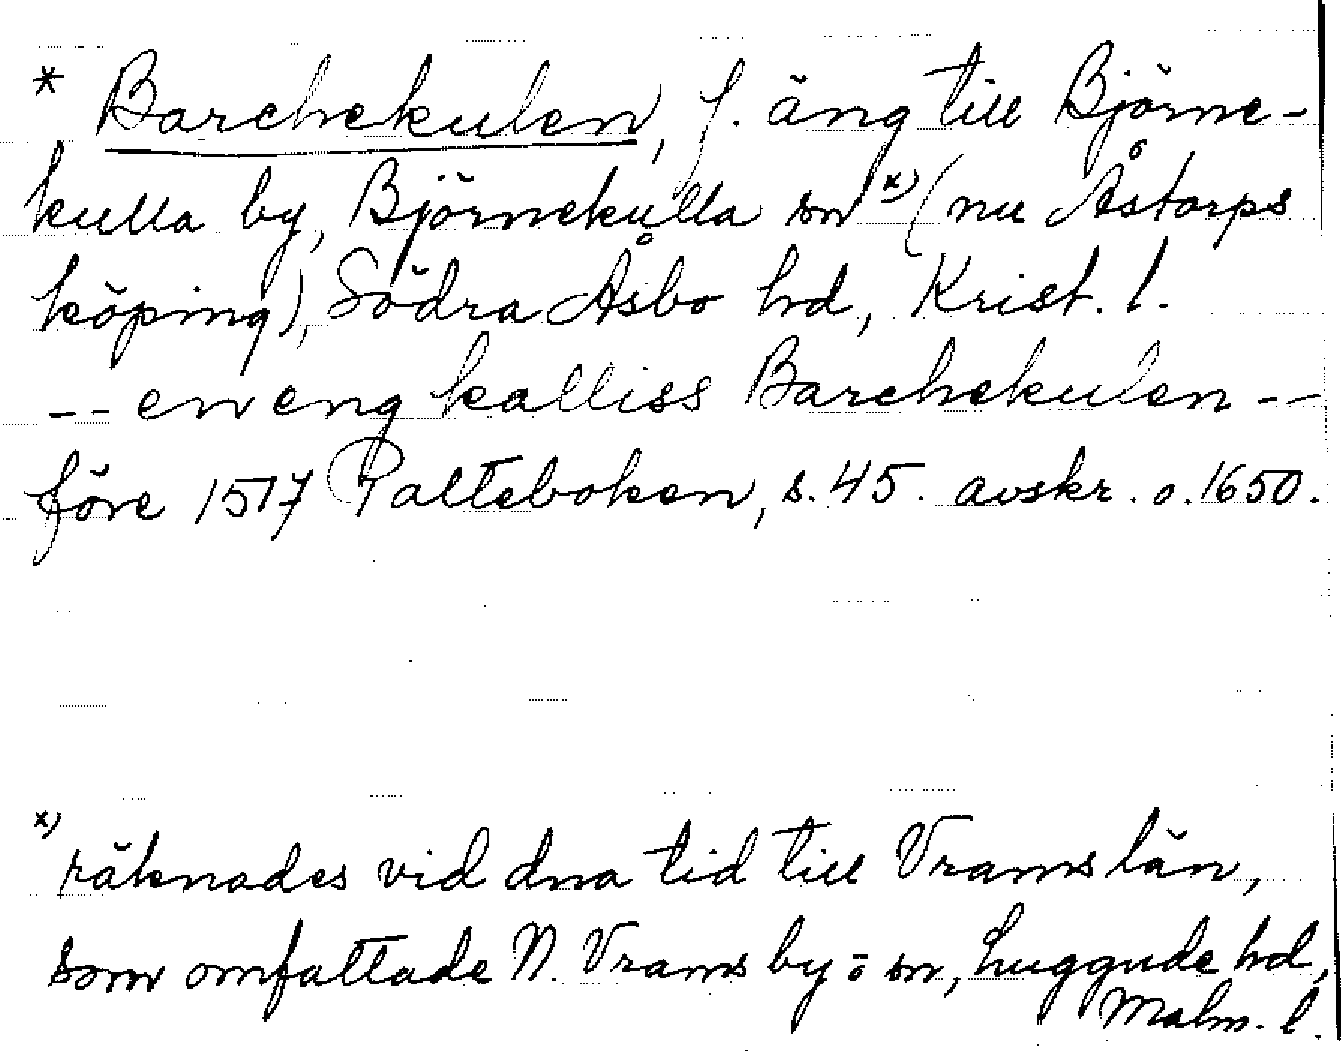 * Barchekulen, f. äng till Björne-
kulla by, Björnekulla sn x) (nu Åstorps
köping), Södra Åsbo hd, Krist. l.
-- en eng kalliss Barchekulen --
före 1517 Palteboken, s. 45. avskr. o. 1650.
x) räknades vid dna tid till Vrams län,
som omfattade N. Vrams by o sn, Luggude hd,
Malm. l.